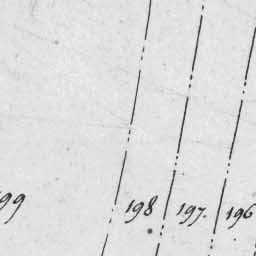 99 198 197. 196